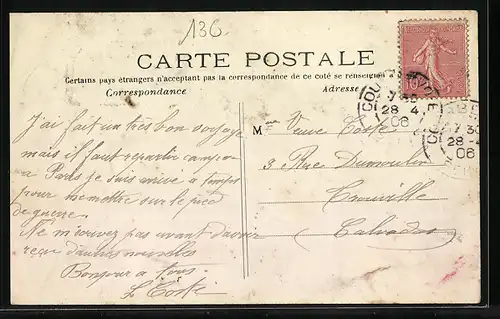 136
CARTE POSTALE
Certains pays étrangers n'acceptent pas la correspondance de ce côté se renseigner
Correspondance
Adresse
J'ai fait un très bon voyage
mais il faut repartir
a Paris je suis arrivé a temps
pour me mettre sur le pied
de guerre.
Ne m'écrivez pas avant d'avoir
reçu d'autres nouvelles
Bonjour a tous
L Coste
Mme Veuve Coste
3 Rue Dumoulin
Trouville
Calvados
10
28-4
06
7 30
28-4
06